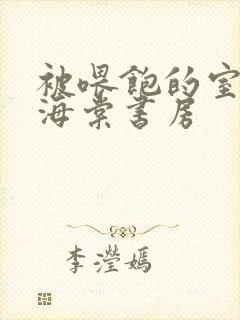 被喂饱的室
海棠书房
李滢嫣